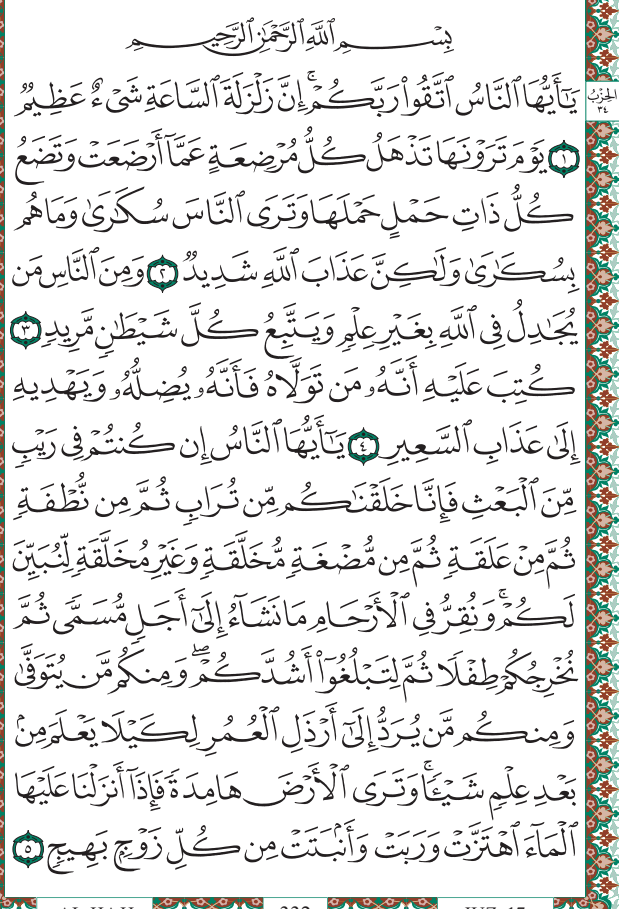 بِسْمِ ٱللَّهِ ٱلرَّحْمَٰنِ ٱلرَّحِيمِ
يَٰٓأَيُّهَا ٱلنَّاسُ ٱتَّقُوا۟ رَبَّكُمْ ۚ إِنَّ زَلْزَلَةَ ٱلسَّاعَةِ شَىْءٌ عَظِيمٌ
١ يَوْمَ تَرَوْنَهَا تَذْهَلُ كُلُّ مُرْضِعَةٍ عَمَّآ أَرْضَعَتْ وَتَضَعُ
كُلُّ ذَاتِ حَمْلٍ حَمْلَهَا وَتَرَى ٱلنَّاسَ سُكَٰرَىٰ وَمَا هُم
بِسُكَٰرَىٰ وَلَٰكِنَّ عَذَابَ ٱللَّهِ شَدِيدٌ ٢ وَمِنَ ٱلنَّاسِ مَن
يُجَٰدِلُ فِى ٱللَّهِ بِغَيْرِ عِلْمٍ وَيَتَّبِعُ كُلَّ شَيْطَٰنٍ مَّرِيدٍ ٣
كُتِبَ عَلَيْهِ أَنَّهُۥ مَن تَوَلَّاهُ فَأَنَّهُۥ يُضِلُّهُۥ وَيَهْدِيهِ
إِلَىٰ عَذَابِ ٱلسَّعِيرِ ٤ يَٰٓأَيُّهَا ٱلنَّاسُ إِن كُنتُمْ فِى رَيْبٍ
مِّنَ ٱلْبَعْثِ فَإِنَّا خَلَقْنَٰكُم مِّن تُرَابٍ ثُمَّ مِن نُّطْفَةٍ
ثُمَّ مِنْ عَلَقَةٍ ثُمَّ مِن مُّضْغَةٍ مُّخَلَّقَةٍ وَغَيْرِ مُخَلَّقَةٍ لِّنُبَيِّنَ
لَكُمْ ۚ وَنُقِرُّ فِى ٱلْأَرْحَامِ مَا نَشَآءُ إِلَىٰٓ أَجَلٍ مُّسَمًّى ثُمَّ
نُخْرِجُكُمْ طِفْلًا ثُمَّ لِتَبْلُغُوٓا۟ أَشُدَّكُمْ ۖ وَمِنكُم مَّن يُتَوَفَّىٰ
وَمِنكُم مَّن يُرَدُّ إِلَىٰٓ أَرْذَلِ ٱلْعُمُرِ لِكَيْلَا يَعْلَمَ مِنۢ
بَعْدِ عِلْمٍ شَيْـًٔا ۚ وَتَرَى ٱلْأَرْضَ هَامِدَةً فَإِذَآ أَنزَلْنَا عَلَيْهَا
ٱلْمَآءَ ٱهْتَزَّتْ وَرَبَتْ وَأَنۢبَتَتْ مِن كُلِّ زَوْجٍۭ بَهِيجٍ ٥
الحِزْبُ
٣٤